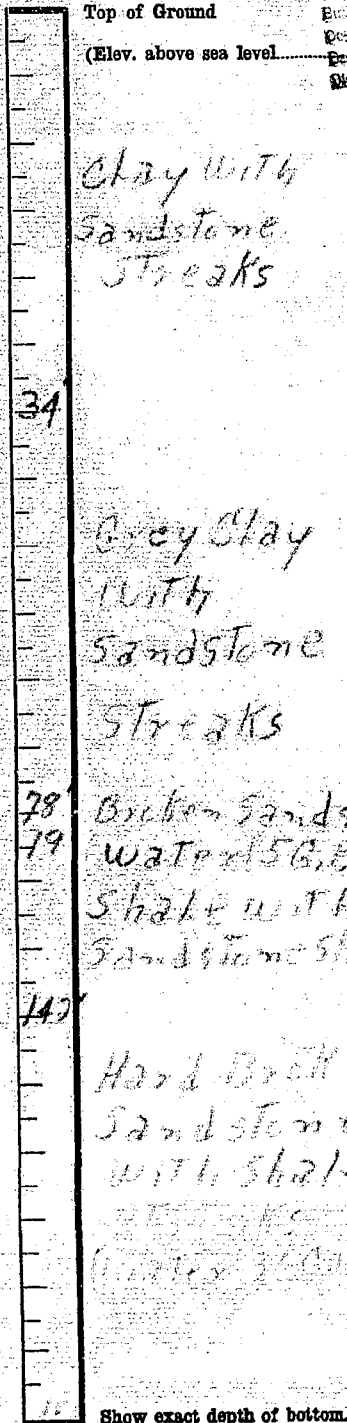 Top of Ground
(Elev. above sea level
Clay With
Sandstone
Streaks
34'
Grey Clay
With
Sandstone
Streaks
78' Broken Sands
79 Water 15 G.
Shale with
Sandstone
142'
Hard
Sandstone
With Shal
Show exact depth of bottom